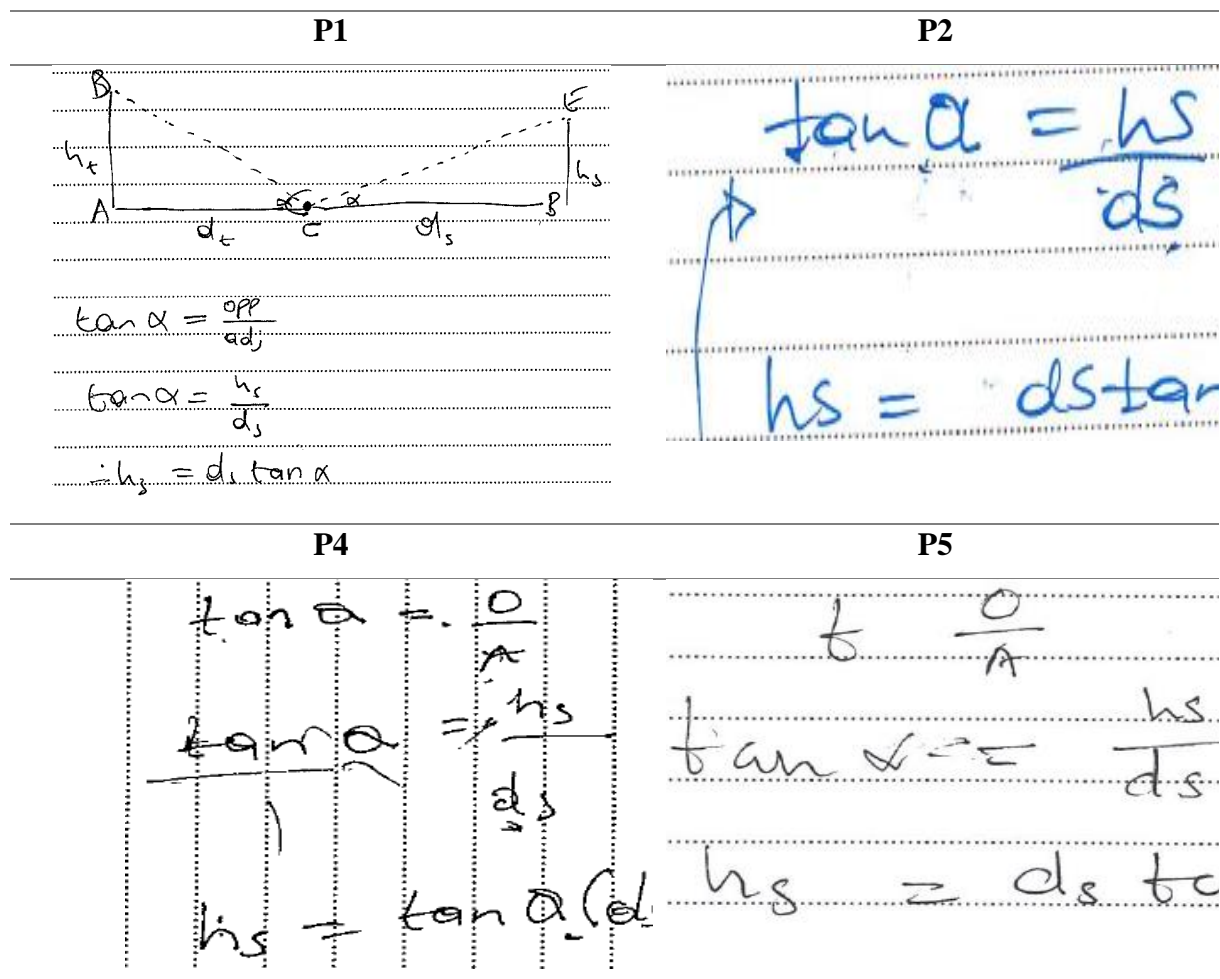 P1
P2
B
E
h_t
h_s
α
α
A
B
d_t
C
d_s
tan α = opp/adj
tan α = h_s/d_s
∴ h_s = d_s tan α
tan a = hs/ds
hs = ds tan
P4
P5
tan a = O/A
tan a = hs/ds
hs = tan a (d
t O/A
tan α = = hs/ds
hs = ds ta